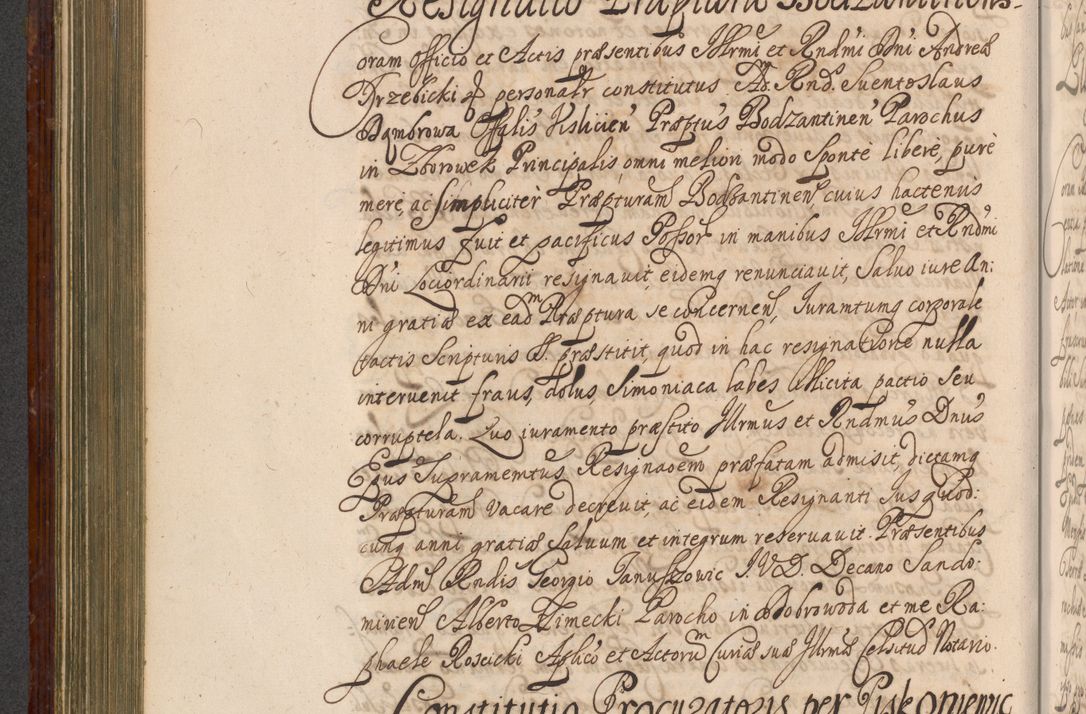 Resignatio Præpturæ Bodzantinens
Coram Officio et Actis præsentibus Illrmi et Rndmi Dni Andreæ
Trzebicki personalr constitutus Ad. Rnd. Suentoslaus
Dąmbrowa Offalis Vislicien Præptus Bodzantinen Parochus
in Zborowek Principalis, omni meliori modo sponte libere, purè
mere, ac simpliciter Præpturam Bodzantinens cuius hactenus
legitimus fuit et pacificus Possor in manibus Illrmi et Rndmi
Dni Lociordinarii resignauit, eidemq renunciauit, Saluo iure An:
ni gratiæ ex eadm Præptura se concernens, Iuramtumq corporale
tactis Scripturis S. præstitit quod in hac resignatione nulla
interuenit fraus, dolus, Simoniaca labes Illicita pactio seu
corruptela. Quo iuramento præstito Illrmus et Rndmus Dnus
Epus Supramemtus Resignaoem præfatam admisit, dictamq
Præpturam Vacare decreuit, ac eidem Resignanti Ius quod:
cunq anni gratiæ Saluum et integrum reseruauit. Præsentibus
Adms Rndis Georgio Januszowic I.V.D. Decano Sando:
miriens Alberto Zimecki Parocho in Dobrowoda et me Ra:
phaele Roscicki Aplico et Actorum Curiæ suæ Illrmæ Celsitud Notario.
Constitutio Procuratoris per Piskorzewic